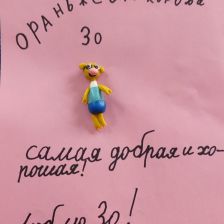 ОРАНЬЖЕВАЯ корова
Зо
самая добрая и хо-
рошая!
Люблю Зо!